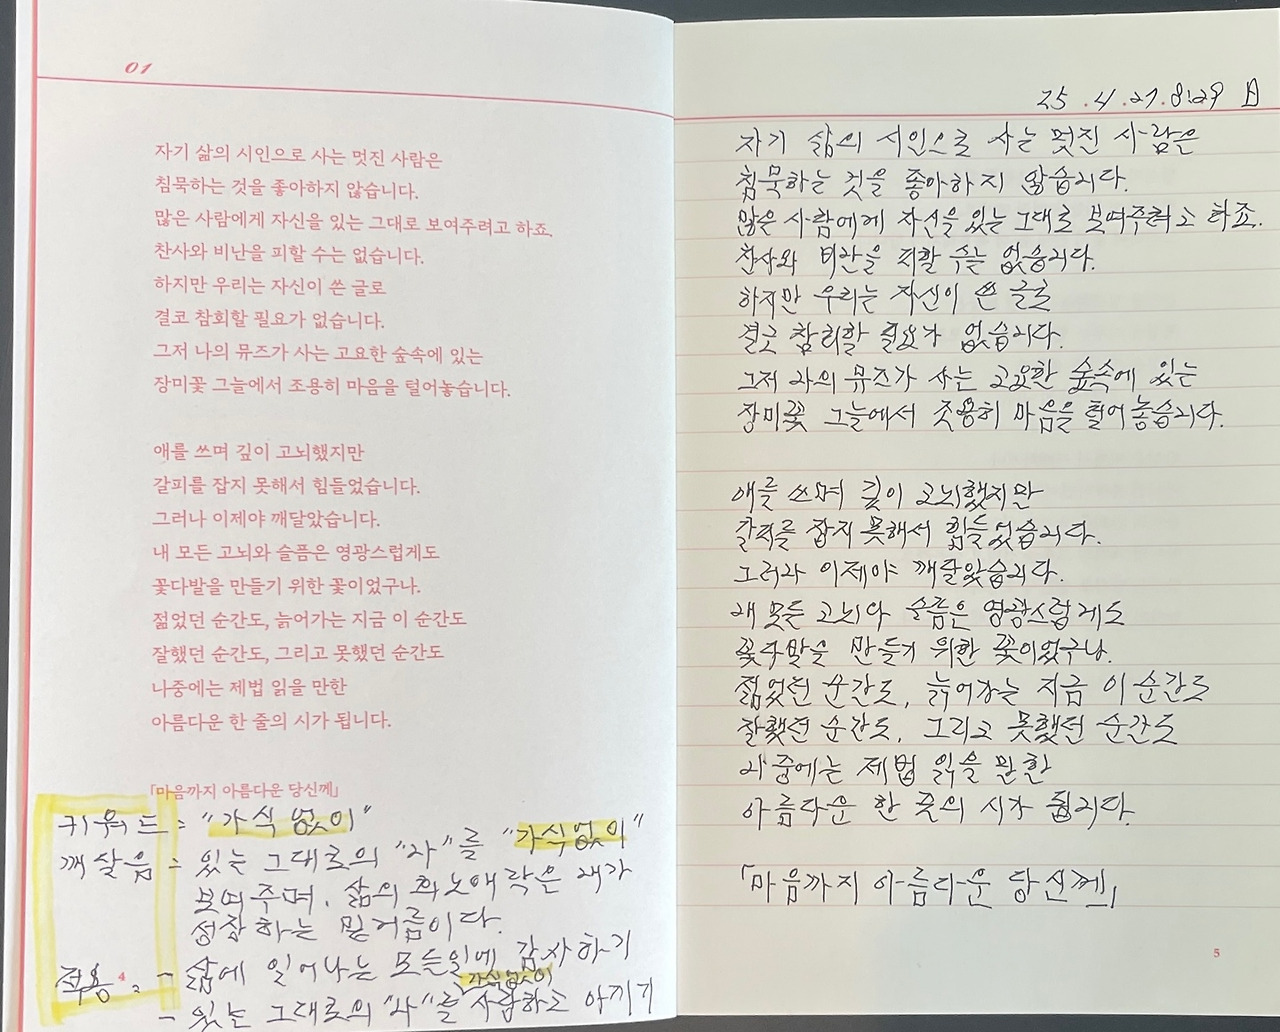 01
자기 삶의 시인으로 사는 멋진 사람은
침묵하는 것을 좋아하지 않습니다.
많은 사람에게 자신을 있는 그대로 보여주려고 하죠.
찬사와 비난을 피할 수는 없습니다.
하지만 우리는 자신이 쓴 글로
결코 참회할 필요가 없습니다.
그저 나의 뮤즈가 사는 고요한 숲속에 있는
장미꽃 그늘에서 조용히 마음을 털어놓습니다.
애를 쓰며 깊이 고뇌했지만
갈피를 잡지 못해서 힘들었습니다.
그러나 이제야 깨달았습니다.
내 모든 고뇌와 슬픔은 영광스럽게도
꽃다발을 만들기 위한 꽃이었구나.
젊었던 순간도, 늙어가는 지금 이 순간도
잘했던 순간도, 그리고 못했던 순간도
나중에는 제법 읽을 만한
아름다운 한 줄의 시가 됩니다.
「마음까지 아름다운 당신께」
키워드 : "가식 없이"
깨달음 : 있는 그대로의 "나"를 "가식없이"
보여주며, 삶의 희노애락은 내가
성장하는 밑거름이다.
적용 : - 삶에 일어나는 모든일에 감사하기
가식없이
- 있는 그대로의 "나"를 사랑하고 아끼기
4
25.4.27.8:29 日
자기 삶의 시인으로 사는 멋진 사람은
침묵하는 것을 좋아하지 않습니다.
많은 사람에게 자신을 있는 그대로 보여주려고 하죠.
찬사와 비난을 피할 수는 없습니다.
하지만 우리는 자신이 쓴 글로
결코 참회할 필요가 없습니다.
그저 나의 뮤즈가 사는 고요한 숲속에 있는
장미꽃 그늘에서 조용히 마음을 털어놓습니다.
애를 쓰며 깊이 고뇌했지만
갈피를 잡지 못해서 힘들었습니다.
그러나 이제야 깨달았습니다.
내 모든 고뇌와 슬픔은 영광스럽게도
꽃다발을 만들기 위한 꽃이었구나.
젊었던 순간도, 늙어가는 지금 이 순간도
잘했던 순간도, 그리고 못했던 순간도
나중에는 제법 읽을 만한
아름다운 한 줄의 시가 됩니다.
「마음까지 아름다운 당신께」
5